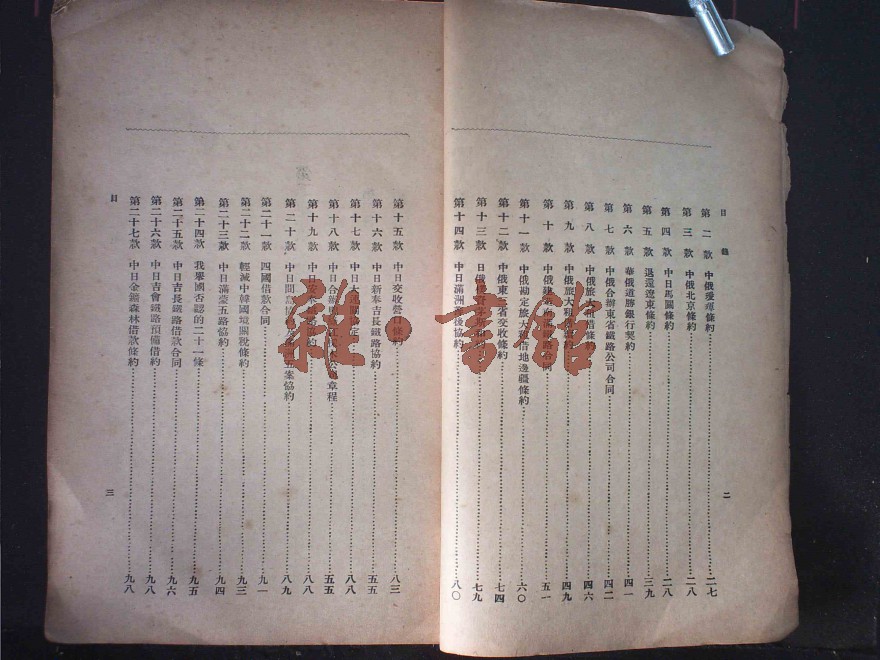 目錄
第二款 中俄愛琿條約 二七
第三款 中俄北京條約 二八
第四款 中日馬關條約 二八
第五款 退還遼東條約 三九
第六款 華俄道勝銀行契約 四一
第七款 中俄合辦東省鐵路公司合同 四二
第八款 中俄旅大租借條約 四六
第九款 中俄旅大租 約 四九
第十款 中俄 合同 五一
第十一款 中俄勘定旅大租借地邊疆條約 六〇
第十二款 中俄東三省交收條約 七四
第十三款 日俄 七九
第十四款 中日滿洲善後協約 八〇
二
第十五款 中日交收營口條約 八三
第十六款 中日新奉吉長鐵路協約 五五
第十七款 中日大連 定 八八
第十八款 中日合辦 公司章程 五五
第十九款 中日安奉 約 八八
第二十款 中日間島 五案協約 八九
第二十一款 四國借款合同 九一
第二十二款 輕減中韓國境關稅條約 九三
第二十三款 中日滿蒙五路協約 九四
第二十四款 我舉國否認的二十一條 九五
第二十五款 中日吉長鐵路借款合同 九六
第二十六款 中日吉會鐵路預備借約 九八
第二十七款 中日金鑛森林借款條約 九八
目
三
雜·書館